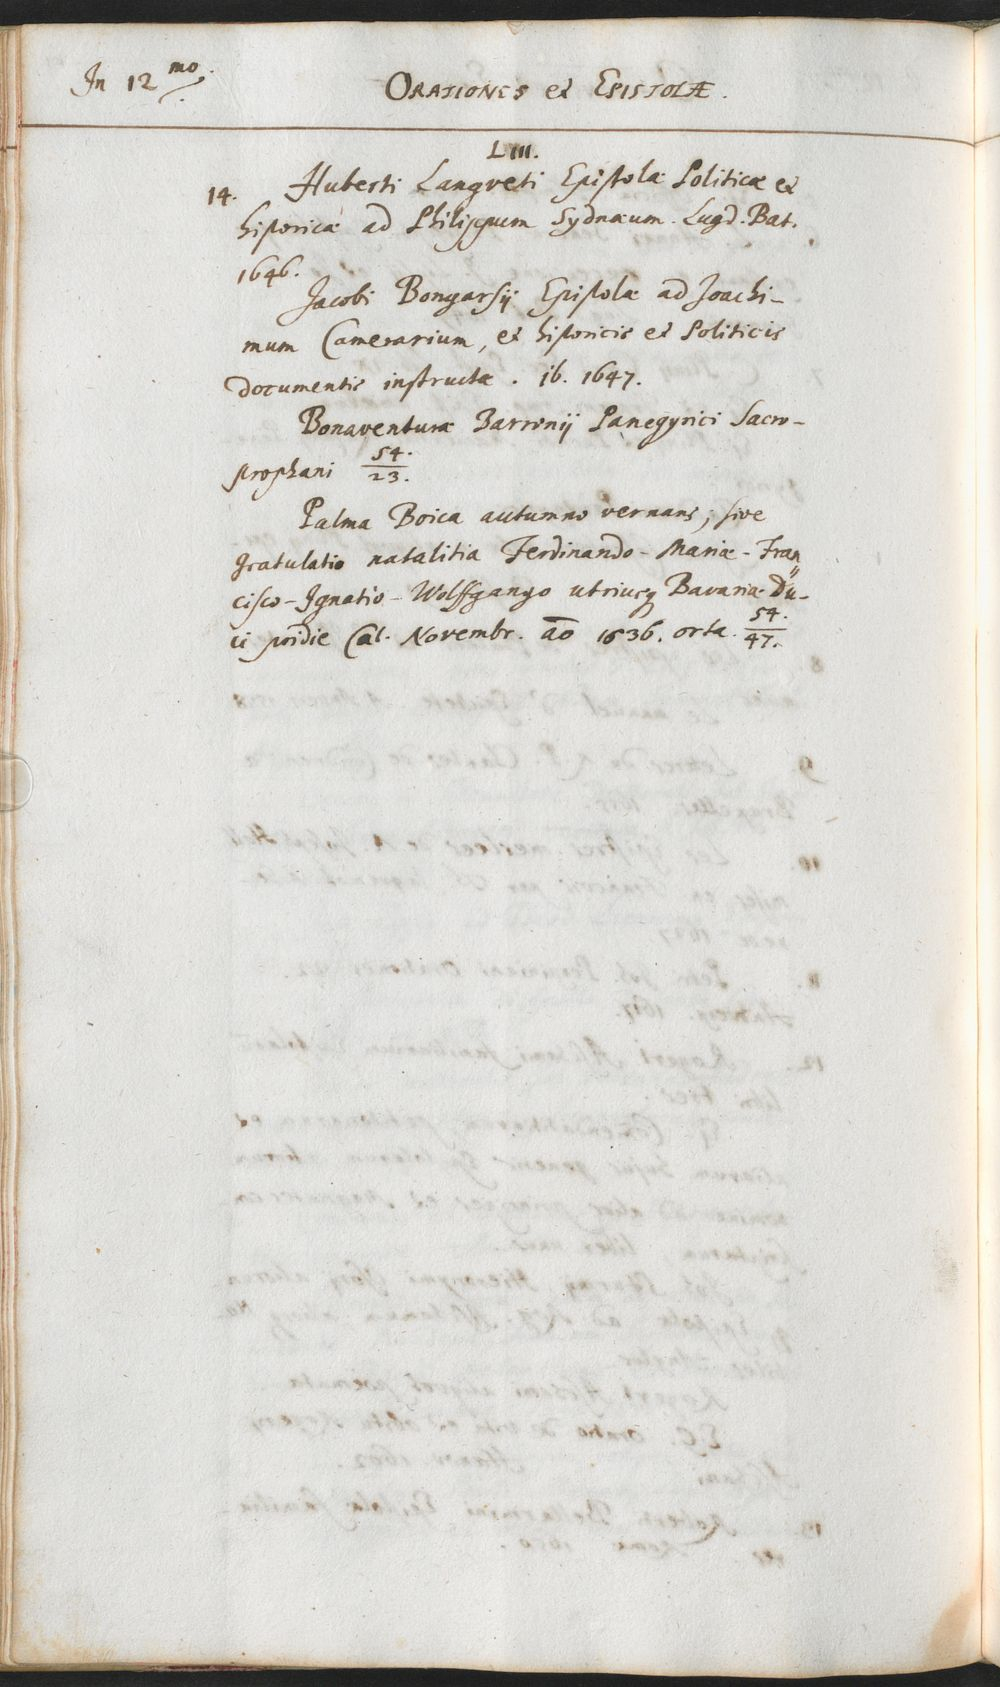 In 12mo.
ORATIONES et EPISTOLÆ.
LIII.
14. Huberti Langveti Epistolæ Politicæ et
historicæ ad Philippum Sydnæum. Lugd. Bat.
1646.
Jacobi Bongarsij Epistolæ ad Joachi-
mum Camerarium, et historicis et Politicis
documentis instructæ. ib. 1647.
Bonaventuræ Barronij Panegyrici Sacro-
prophani 54./23.
Palma Boica autumno vernans, sive
gratulatio natalitia Ferdinando-Mariæ-Fran
cisco-Ignatio-Wolffgango utriusq Bavariæ Du-
ci pridie Cal. Novembr. ao 1636. orta. 54./47.